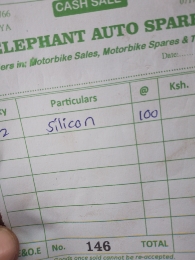 CASH SALE
ELEPHANT AUTO SPAR
ers in: Motorbike Sales, Motorbike Spares & T
Date
Particulars @ Ksh.
2 Silicon 100
E&O.E No. 146 TOTAL
Goods once sold cannot be re-accepted.